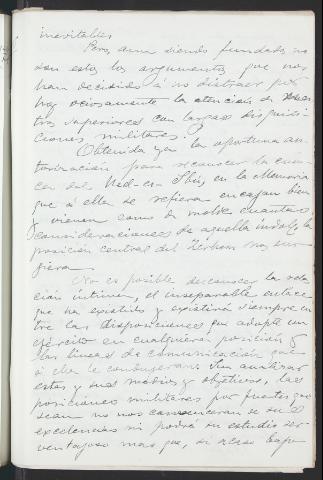 inevitables.
Pero, aun siendo fundados no
son estos los argumentos que nos
han decidido á no distraer por
hoy ociosamente la atención de nues
tros superiores con largas disquisi-
ciones militares.
Obtenida ya la oportuna au-
torización para reconocer la cuen
ca del Ued-en en la Memoria
que á ella se refiera encajan bien
y vienen como de molde cuantas
consideraciones de aquella índole la
posición central del Zerhom nos su-
giera.
No es posible desconocer la rela
ción íntima, el inseparable enlace
que ha existido y existirá siempre en
tre las disposiciones que adopte un
ejército en cualquiera posición y
las líneas de comunicación que
á ella le condujeran. Sin analizar
estas y sus medios y objetivos, las
posiciones militares por fuertes que
sean no nos convencerán de su
excelencias ni podrá su estudio ser
ventajoso mas que, si acaso bajo